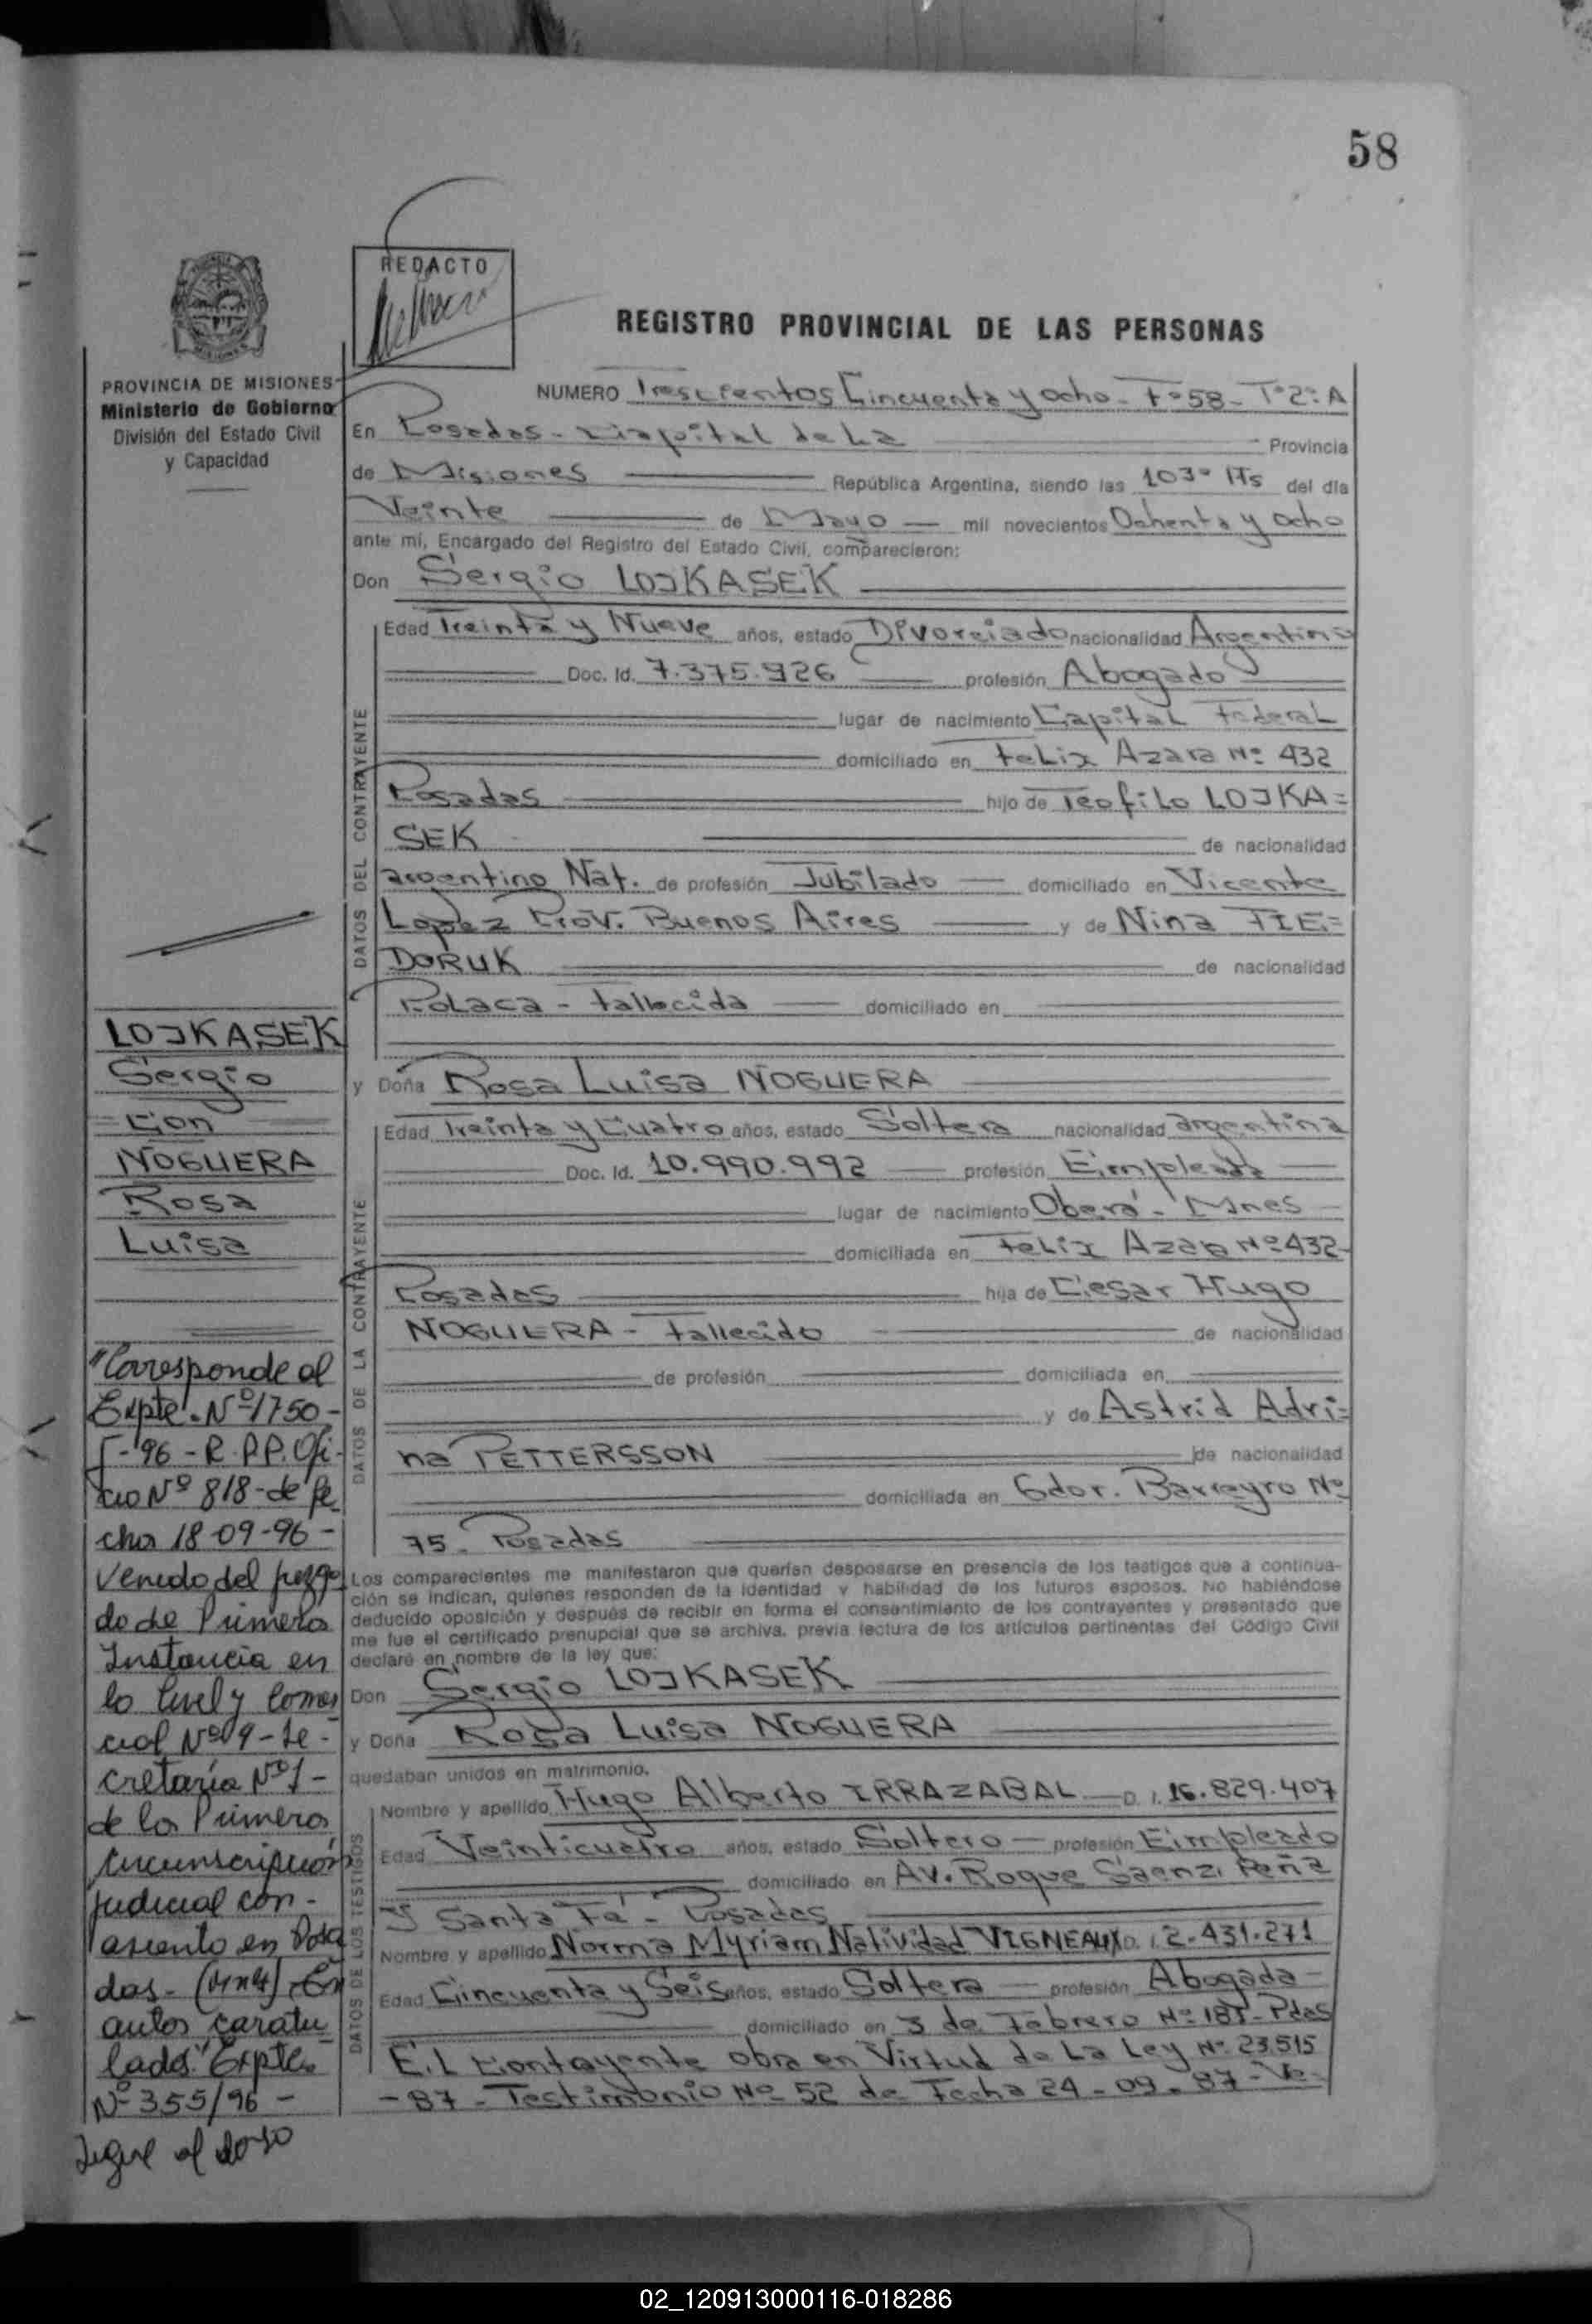 58
REDACTO
REGISTRO PROVINCIAL DE LAS PERSONAS
PROVINCIA DE MISIONES
Ministerio de Gobierno
División del Estado Civil
y Capacidad
NUMERO Trescientos Cincuenta y ocho - F° 58 - T° 2° A
En Posadas - Capital de La Provincia
de Misiones República Argentina, siendo las 1030 Hs del día
Veinte de Mayo mil novecientos Ochenta y ocho
ante mí, Encargado del Registro del Estado Civil, comparecieron:
Don Sergio LOJKASEK
Edad Treinta y Nueve años, estado Divorciado nacionalidad Argentino
Doc. Id. 7.375.926 profesión Abogado
lugar de nacimiento Capital Federal
domiciliado en Felix Azara Nº 432
Posadas hijo de Teofilo LOJKA=
SEK de nacionalidad
argentino Nat. de profesión Jubilado domiciliado en Vicente
Lopez Prov. Buenos Aires y de Nina FIE=
DORUK de nacionalidad
Polaca - fallecida domiciliado en
DATOS DEL CONTRAYENTE
y Doña Rosa Luisa NOGUERA
Edad Treinta y Cuatro años, estado Soltera nacionalidad argentina
Doc. Id. 10.990.992 profesión Empleada
lugar de nacimiento Oberá - Mnes
domiciliada en Felix Azara Nº 432-
Posadas hija de Cesar Hugo
NOGUERA - fallecido de nacionalidad
de profesión domiciliada en
y de Astrid Adri=
na PETTERSSON de nacionalidad
domiciliada en Gdor. Barreyro Nº
75 - Posadas
DATOS DE LA CONTRAYENTE
Los comparecientes me manifestaron que querían desposarse en presencia de los testigos que a continua-
ción se indican, quienes responden de la identidad y habilidad de los futuros esposos. No habiéndose
deducido oposición y después de recibir en forma el consentimiento de los contrayentes y presentado que
me fue el certificado prenupcial que se archiva, previa lectura de los artículos pertinentes del Código Civil
declaré en nombre de la ley que:
Don Sergio LOJKASEK
y Doña Rosa Luisa NOGUERA
quedaban unidos en matrimonio.
Nombre y apellido Hugo Alberto IRRAZABAL D. I. 16.829.407
Edad Veinticuatro años, estado Soltero profesión Empleado
domiciliado en AV. Roque Saenz Peña
y Santa Fé - Posadas
Nombre y apellido Norma Myriam Natividad VIGNEAUX D. I. 2.431.271
Edad Cincuenta y Seis años, estado Soltera profesión Abogada -
domiciliado en 3 de Febrero Nº 185 - Pdas
DATOS DE LOS TESTIGOS
E.L Contayente obra en Virtud de La Ley Nº 23.515
- 87 - Testimonio Nº 52 de Fecha 24-09-87-
LOJKASEK
Sergio
= Con =
NOGUERA
Rosa
Luisa
"Corresponde al
Expte. Nº 1750-
96 - R.P.P. Ofi-
cio Nº 818- de fe
cha 18-09-96-
Venido del juzga
do de Primera
Instancia en
lo Civil y Comer
cial Nº 9 - Se-
cretaría Nº 1-
de la Primera
circunscripción
judicial con-
asiento en Posa
das - (Mnes) - En
autos caratu
lados "Expte.
Nº 355/96 -
Sigue al dorso
02_120913000116-018286